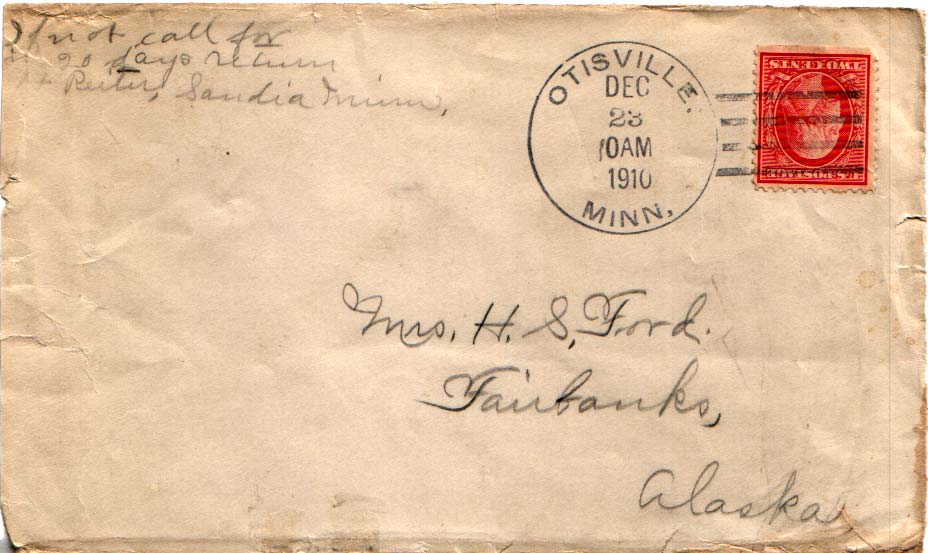 If not call for
in 20 days return
Reiter, Sandia Minn,
OTISVILLE.
DEC
23
10AM
1910
MINN.
TWO CENTS
U.S. POSTAGE
Mrs. H. S. Ford.
Fairbanks,
Alaska